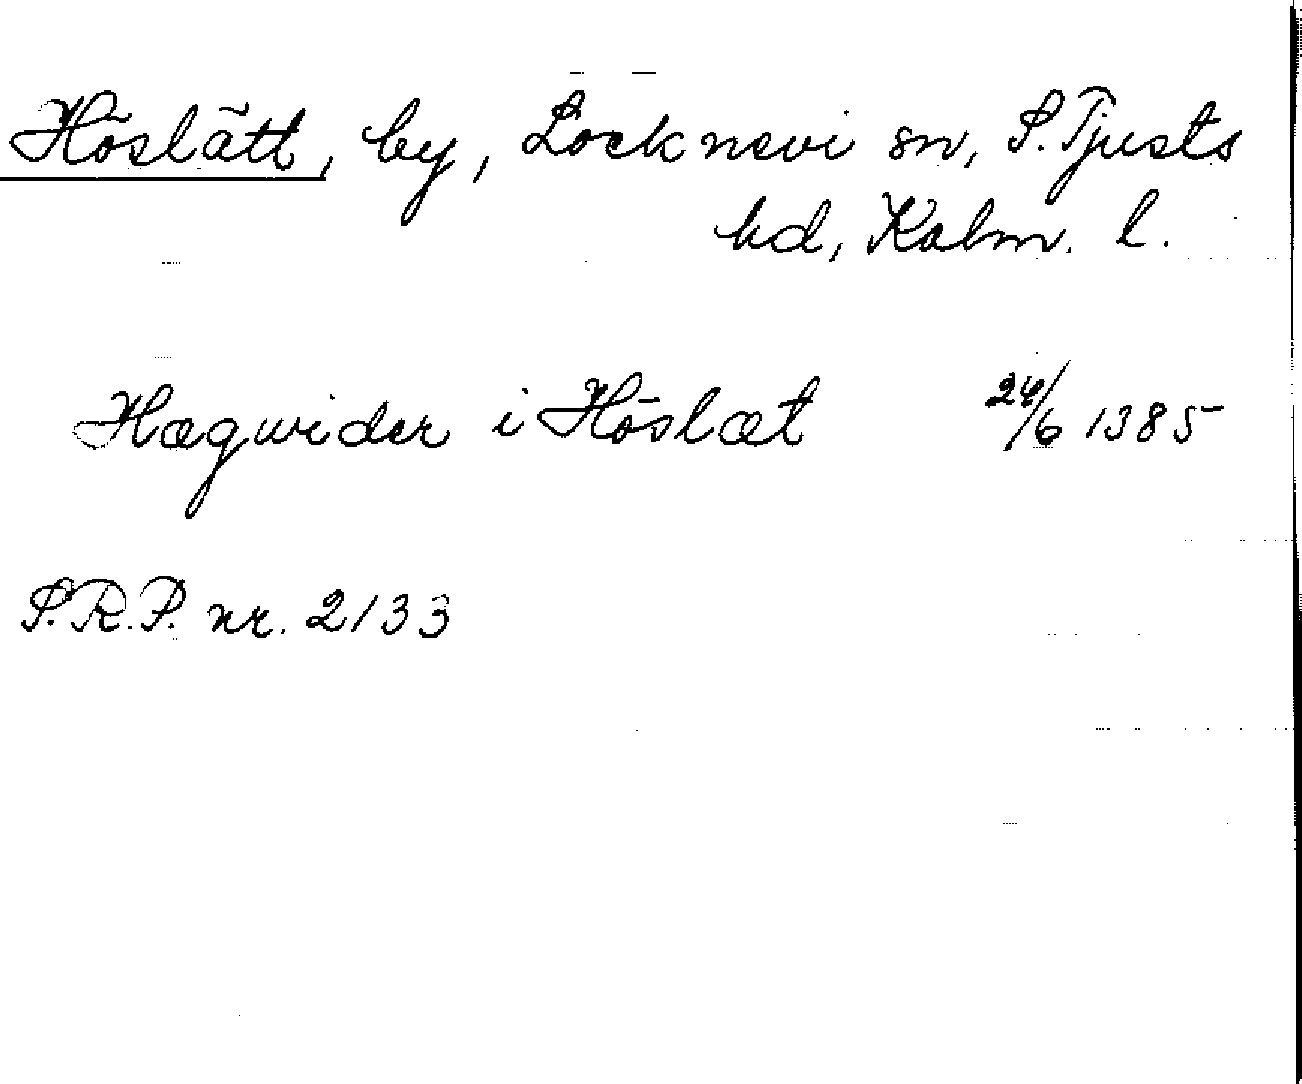 Höslätt, by, Locknevi sn, S. Tjusts
hd, Kalm. l.
Hægwider i Höslæt 24/6 1385
S.R.P. nr. 2133